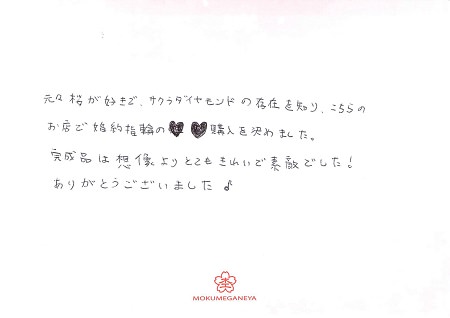 元々桜が好きで、サクラダイヤモンドの存在を知り、こちらの
お店で婚約指輪の購入を決めました。
完成品は想像よりとてもきれいで素敵でした！
ありがとうございました♪
MOKUMEGANEYA